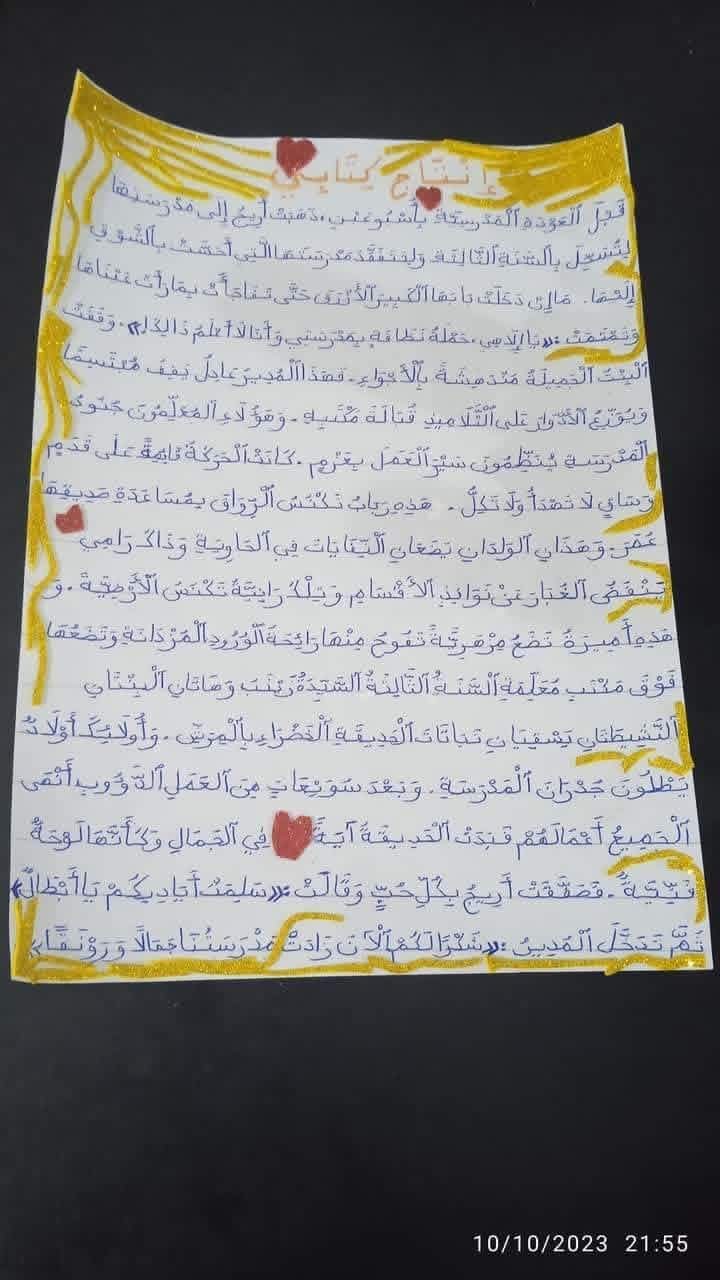 إِنْتَاج كِتَابِي
قَبْلَ الْعَوْدَةِ الْمَدْرَسِيَّةِ بِأُسْبُوعَيْنِ، ذَهَبَتْ أَرِيجُ إِلَى مَدْرَسَتِهَا
لِتُسَجِّلَ بِالسَّنَةِ الثَّالِثَةِ وَلِتَتَفَقَّدَ مَدْرَسَتَهَا الَّتِي أَحَسَّتْ بِالشَّوْقِ
إِلَيْهَا. مَا إِنْ دَخَلَتْ بَابَهَا الْكَبِيرَ الْأَزْرَقَ حَتَّى تَفَاجَأَتْ بِمَا رَأَتْ عَيْنَاهَا
وَتَمْتَمَتْ :«يَا إِلَاهِي، حَمْلَةُ نَظَافَةٍ بِمَدْرَسَتِي وَأَنَا لَا أَعْلَمُ ذَالِكَ!». وَقَفَتْ
الْبِنْتُ الْجَمِيلَةُ مُنْدَهِشَةً بِالْأَجْوَاءِ. فَهَذَا الْمُدِيرُ عَادِلُ يَقِفُ مُبْتَسِمًا
وَيُوَزِّعُ الْأَدْوَارَ عَلَى التَّلَامِيذِ قُبَالَةَ مَكْتَبِهِ. وَهَؤُلَاءِ الْمُعَلِّمُونَ جُنُودُ
الْمَدْرَسَةِ يُنَظِّمُونَ سَيْرَ الْعَمَلِ بِعَزْمٍ. كَانَتْ الْحَرَكَةُ قَائِمَةً عَلَى قَدَمٍ
وَسَاقٍ لَا تَهْدَأُ وَلَا تَكِلُّ. هَذِهِ رِحَابُ تَكْنَسُ الرِّوَاقَ بِمُسَاعَدَةِ صَدِيقِهَا
عُمَرَ. وَهَذَانِ الْوَلَدَانِ يَضَعَانِ النِّفَايَاتِ فِي الْحَاوِيَةِ وَذَاكَ رَامِي
يَنْفُضُ الْغُبَارَ عَنْ نَوَافِذِ الْأَقْسَامِ وَتِلْكَ رَانِيَةُ تَكْنَسُ الْأَرْضِيَّةَ. وَ
هَذِهِ أَمِيرَةُ تَضَعُ مِزْهَرِيَّةً تَفُوحُ مِنْهَا رَائِحَةُ الْوُرُودِ الْمُزْدَانَةِ وَتَضَعُهَا
فَوْقَ مَكْتَبِ مُعَلِّمَةِ السَّنَةُ الثَّالِثَةُ السَّيِّدَةُ زَيْنَبَ وَهَاتَانِ الْبِنْتَانِ
النَّشِيطَتَانِ يَسْقِيَانِ نَبَاتَاتَ الْحَدِيقَةِ الْخَضْرَاءِ بِالْمِرَشِّ. وَأُولَائِكَ أَوْلَادٌ
يَطْلُونَ جُدْرَانَ الْمَدْرَسَةِ. وَبَعْدَ سُوَيْعَاتٍ مِنَ الْعَمَلِ الدَّؤُوبِ أَنْهَى
الْجَمِيعُ أَعْمَالَهُمْ فَبَدَتْ الْحَدِيقَةُ آيَةً فِي الْجَمَالِ وَكَأَنَّهَا لَوْحَةٌ
فَنِّيَّةٌ. فَصَفَّقَتْ أَرِيجُ بِكُلِّ حُبٍّ وَقَالَتْ :«سَلِمَتْ أَيَادِيكُمْ يَا أَبْطَالُ»
ثُمَّ تَدَخَّلَ الْمُدِيرُ :«شُكْرًا لَكُمْ الْآنَ زَادَتْ مَدْرَسَتُنَا جَمَالًا وَرَوْنَقًا»
10/10/2023 21:55